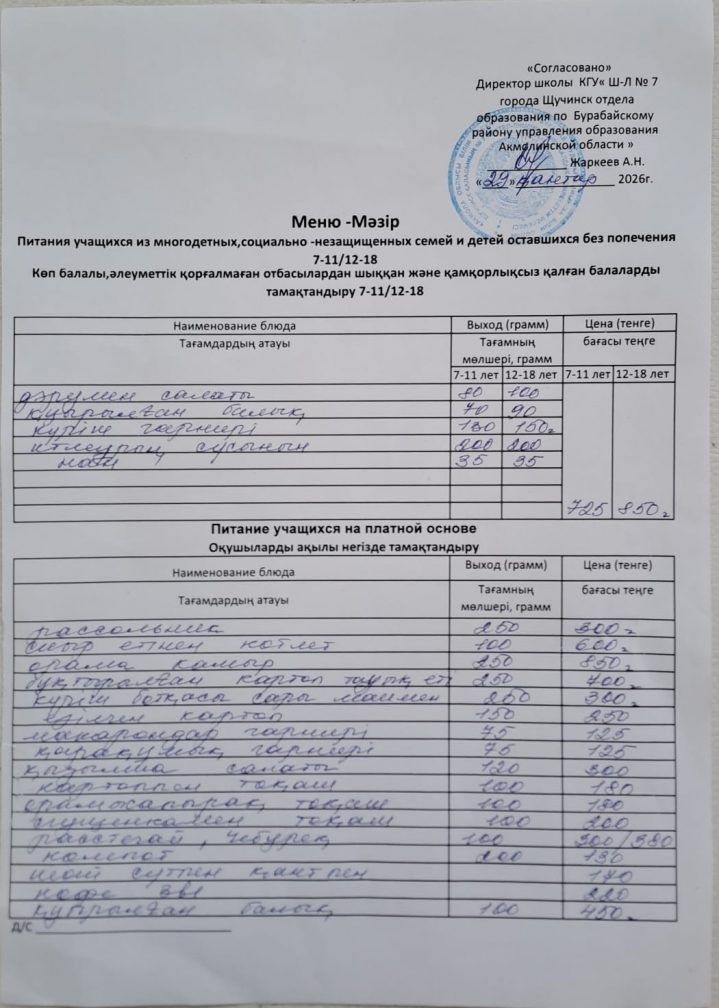 «Согласовано»
Директор школы КГУ« Ш-Л № 7
города Щучинск отдела
образования по Бурабайскому
району управления образования
Акмолинской области »
Жаркеев А.Н.
«29» қантар 2026г.
Меню -Мәзір
Питания учащихся из многодетных,социально -незащищенных семей и детей оставшихся без попечения
7-11/12-18
Көп балалы,әлеуметтік қорғалмаған отбасылардан шыққан және қамқорлықсыз қалған балаларды
тамақтандыру 7-11/12-18
Наименование блюда Выход (грамм) Цена (тенге)
Тағамдардың атауы Тағамның мөлшері, грамм бағасы теңге
7-11 лет 12-18 лет 7-11 лет 12-18 лет
дәрумен салаты 80 100
қуырылған балық 70 90
күріш гарнирі 130 150г
итмұрын сусынын 200 200
нан 35 35
725 850г
Питание учащихся на платной основе
Оқушыларды ақылы негізде тамақтандыру
Наименование блюда Выход (грамм) Цена (тенге)
Тағамдардың атауы Тағамның мөлшері, грамм бағасы теңге
рассольник 250 300г
сиыр етінен котлет 100 600г
орама қамыр 250 850г
бұқтырылған картоп тауық еті 250 700г
күріш ботқасы сары маймен 250 300г
езілген картоп 150 250
макарондар гарнирі 75 125
қарақұмық гарнирі 75 125
қызылша салаты 120 300
картоппен тоқаш 100 180
орамжапырақ тоқаш 100 180
тоқаш 100 200
расстегай, чебурек 100 300/380
компот 200 130
шай сүтпен қантпен 170
кофе 3в1 220
қуырылған балық 100 450г
Д/С